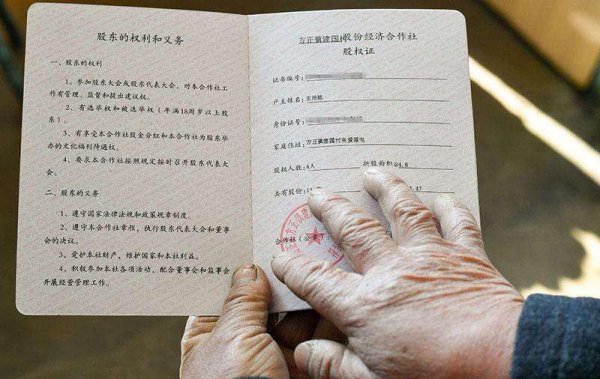 股东的权利和义务
一、股东的权利
1、参加股东大会或股东代表大会，对本合作社工
作有管理、监督和提出建议权。
2、有选举权和被选举权（年满18周岁以上股
东）。
3、有享受本合作社股金分红和本合作社为股东举
办的文化福利待遇权。
4、要求本合作社按照规定按时召开股东代表大
会。
二、股东的义务
1、遵守国家法律法规和政策规章制度。
2、遵守本合作社章程，执行股东代表大会和董事
会的决议。
3、爱护本社财产，维护国家和本社利益。
4、积极参加本社各项活动，配合董事会和监事会
开展经营管理工作。
方正镇建国村股份经济合作社
股权证
证书编号：
户主姓名：王
身份证号：
家庭住址：方正镇建国村东
股权人数：4人 折股面积：24.6
共有股份：
合作社（公章）